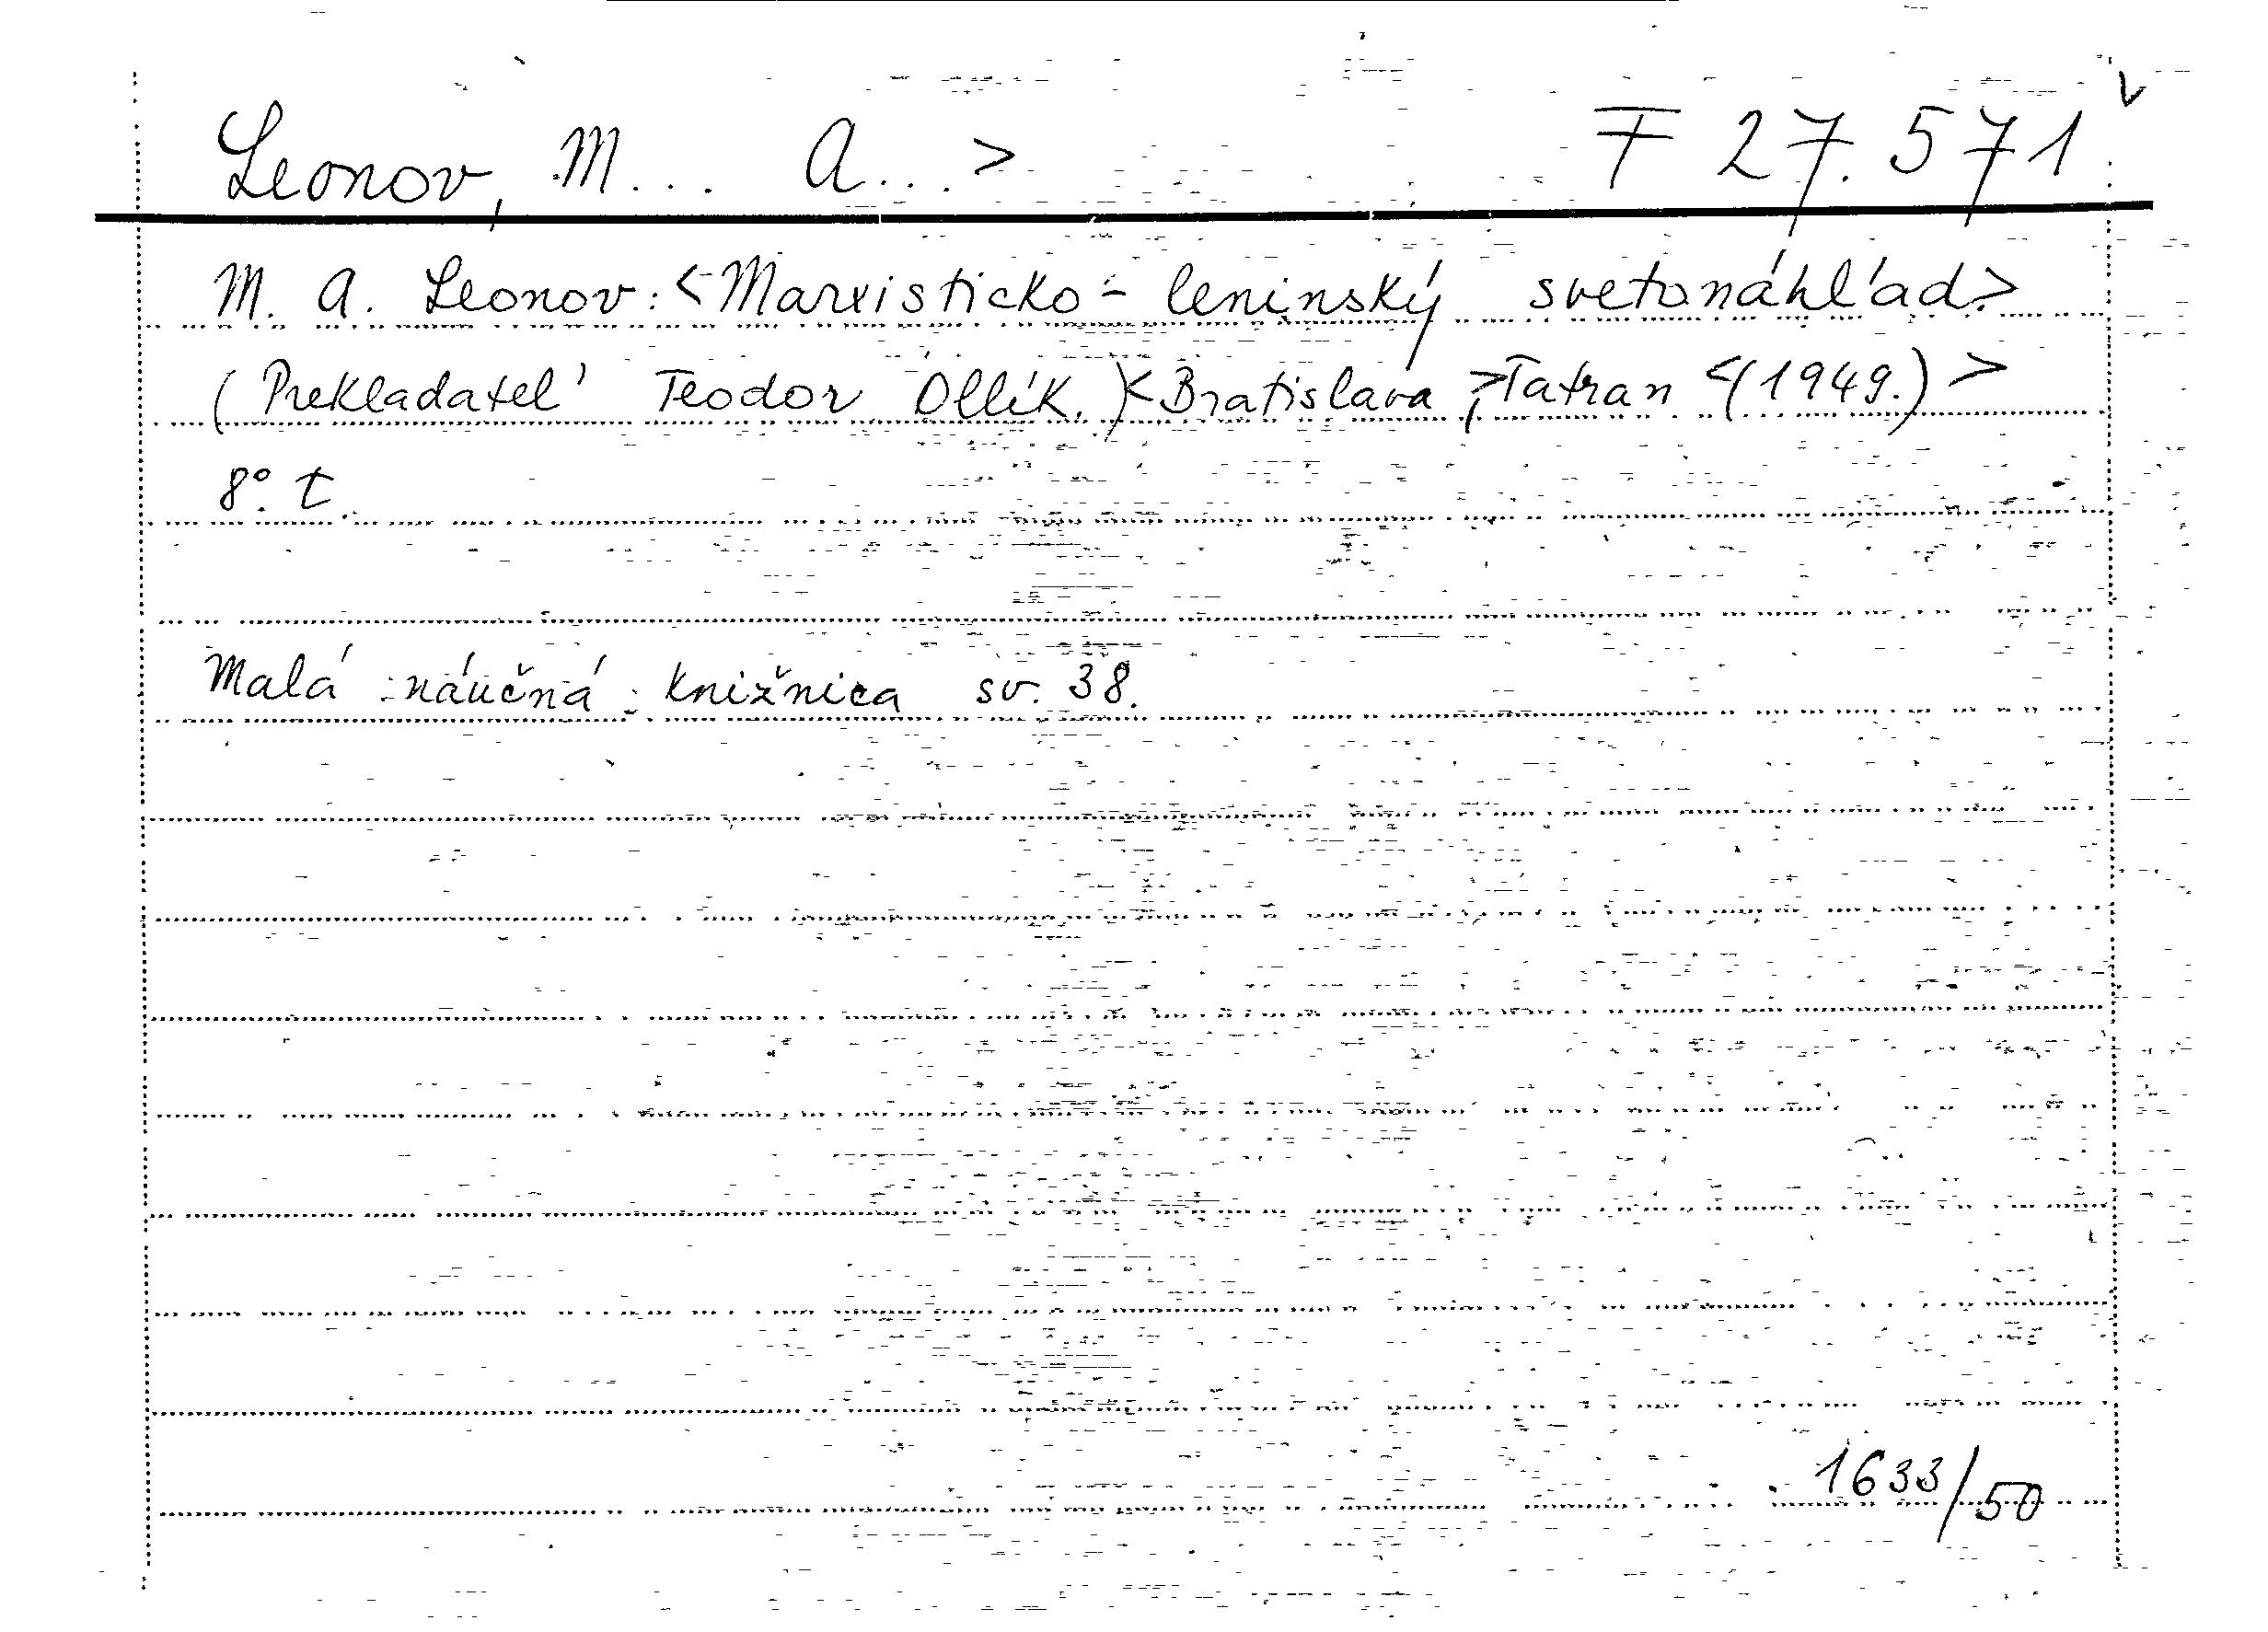 Leonov, M... A...> F 27.571 v
M. A. Leonov: <Marxisticko-leninský svetonáhľad>
(Prekladateľ Teodor Ollík.) <Bratislava,> Tatran <(1949.)>
8°. t.
Malá náučná knižnica sv. 38.
1633/50